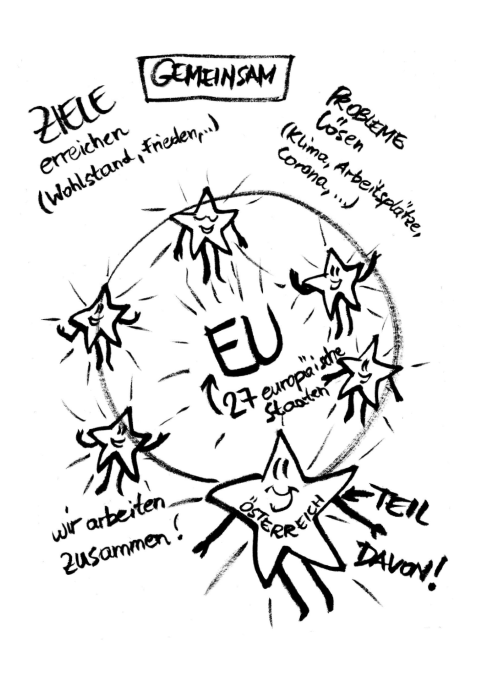 GEMEINSAM
ZIELE
erreichen
(Wohlstand, Frieden,...)
PROBLEME
lösen
(Klima, Arbeitsplätze,
Corona,...)
EU
27 europäische
Staaten
wir arbeiten
zusammen!
ÖSTERREICH
TEIL
DAVON!